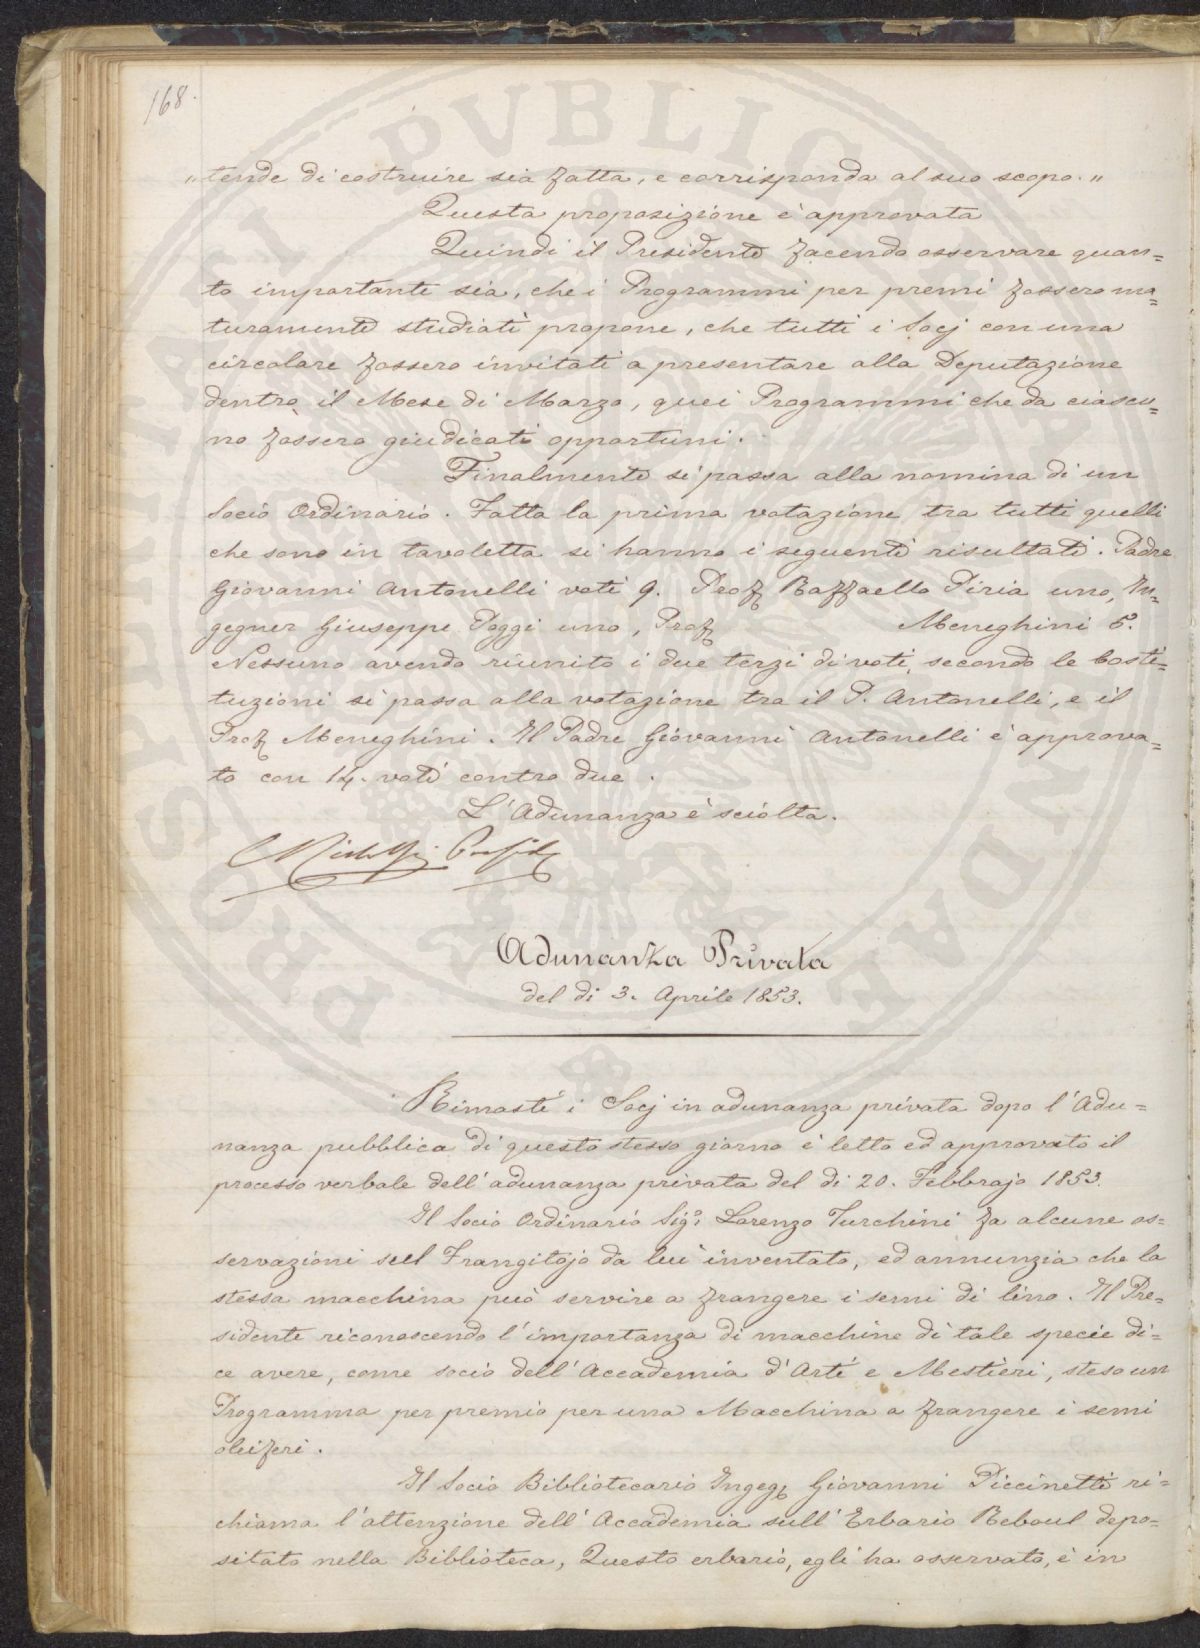 168.
„ tende di costruire sia fatta, e corrisponda al suo scopo. „
Questa proposizione è approvata
Quindi il Presidente facendo osservare quan=
to importante sia, che i Programmi per premi fossero ma=
turamente studiati propone, che tutti i Socj con una
circolare fossero invitati a presentare alla Deputazione
dentro il Mese di Marzo, quei Programmi che da ciascu=
no fossero giudicati opportuni.
Finalmente si passa alla nomina di un
Socio Ordinario. Fatta la prima votazione tra tutti quelli
che sono in tavoletta si hanno i seguenti risultati. Padre
Giovanni Antonelli voti 9. Prof Raffaello Piria uno, In=
gegner Giuseppe Poggi uno, Prof Meneghini 5.
Nessuno avendo riunito i due terzi di voti, secondo le Costi=
tuzioni si passa alla votazione tra il P. Antonelli, e il
Prof Meneghini. Il Padre Giovanni Antonelli è approva=
to con 14. voti contro due.
L'Adunanza è sciolta.
Adunanza Privata
del di 3. Aprile 1853.
Rimasti i Socj in adunanza privata dopo l'Adu=
nanza pubblica di questo stesso giorno è letto ed approvato il
processo verbale dell'adunanza privata del di 20. Febbrajo 1853.
Il Socio Ordinario Sigr. Lorenzo Turchini fa alcune os=
servazioni sul Frangitojo da lui inventato, ed annunzia che la
stessa macchina può servire a frangere i semi di lino. Il Pre=
sidente riconoscendo l'importanza di macchine di tale specie di=
ce avere, come socio dell'Accademia d'Arti e Mestieri, steso un
Programma per premio per una Macchina a frangere i semi
oleiferi.
Il Socio Bibliotecario Ingeg Giovanni Piccinetti ri=
chiama l'attenzione dell'Accademia sull'Erbario Reboul depo=
sitato nella Biblioteca, Questo erbario, egli ha osservato, è in
PROSPERITATI PUBLICAE AUGENDAE